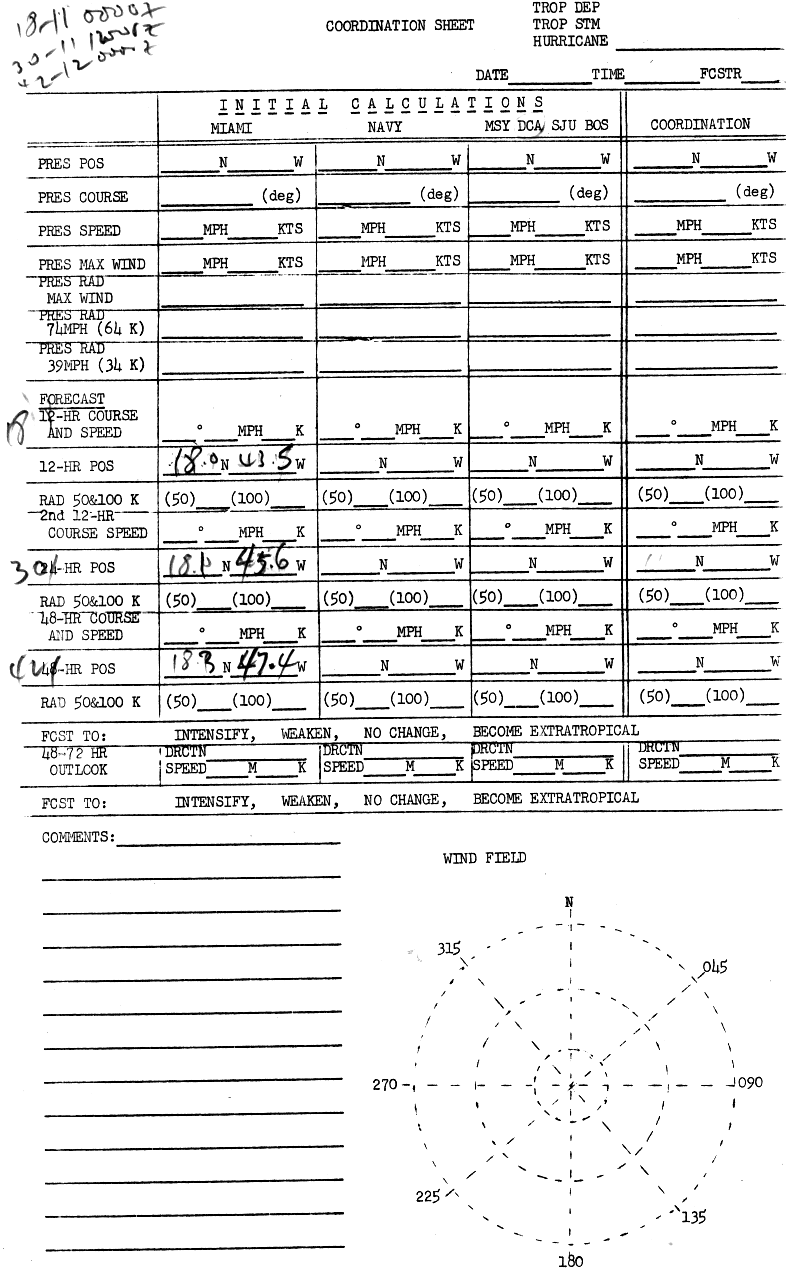 18-11 0000Z
30-11 1200Z
42-12 0000Z
COORDINATION SHEET
TROP DEP
TROP STM
HURRICANE
DATE TIME FCSTR
INITIAL CALCULATIONS
MIAMI NAVY MSY DCA, SJU BOS COORDINATION
PRES POS N W N W N W N W
PRES COURSE (deg) (deg) (deg) (deg)
PRES SPEED MPH KTS MPH KTS MPH KTS MPH KTS
PRES MAX WIND MPH KTS MPH KTS MPH KTS MPH KTS
PRES RAD
MAX WIND
PRES RAD
74MPH (64 K)
PRES RAD
39MPH (34 K)
FORECAST
12-HR COURSE
18 AND SPEED ° MPH K ° MPH K ° MPH K ° MPH K
12-HR POS 18.0 N 43.5 W N W N W N W
RAD 50&100 K (50) (100) (50) (100) (50) (100) (50) (100)
2nd 12-HR
COURSE SPEED ° MPH K ° MPH K ° MPH K ° MPH K
30 24-HR POS 18.1 N 45.6 W N W N W N W
RAD 50&100 K (50) (100) (50) (100) (50) (100) (50) (100)
48-HR COURSE
AND SPEED ° MPH K ° MPH K ° MPH K ° MPH K
42 48-HR POS 18.3 N 47.4 W N W N W N W
RAD 50&100 K (50) (100) (50) (100) (50) (100) (50) (100)
FCST TO: INTENSIFY, WEAKEN, NO CHANGE, BECOME EXTRATROPICAL
48-72 HR DRCTN DRCTN DRCTN DRCTN
OUTLOOK SPEED M K SPEED M K SPEED M K SPEED M K
FCST TO: INTENSIFY, WEAKEN, NO CHANGE, BECOME EXTRATROPICAL
COMMENTS:
WIND FIELD
N
315
045
270
090
225
135
180